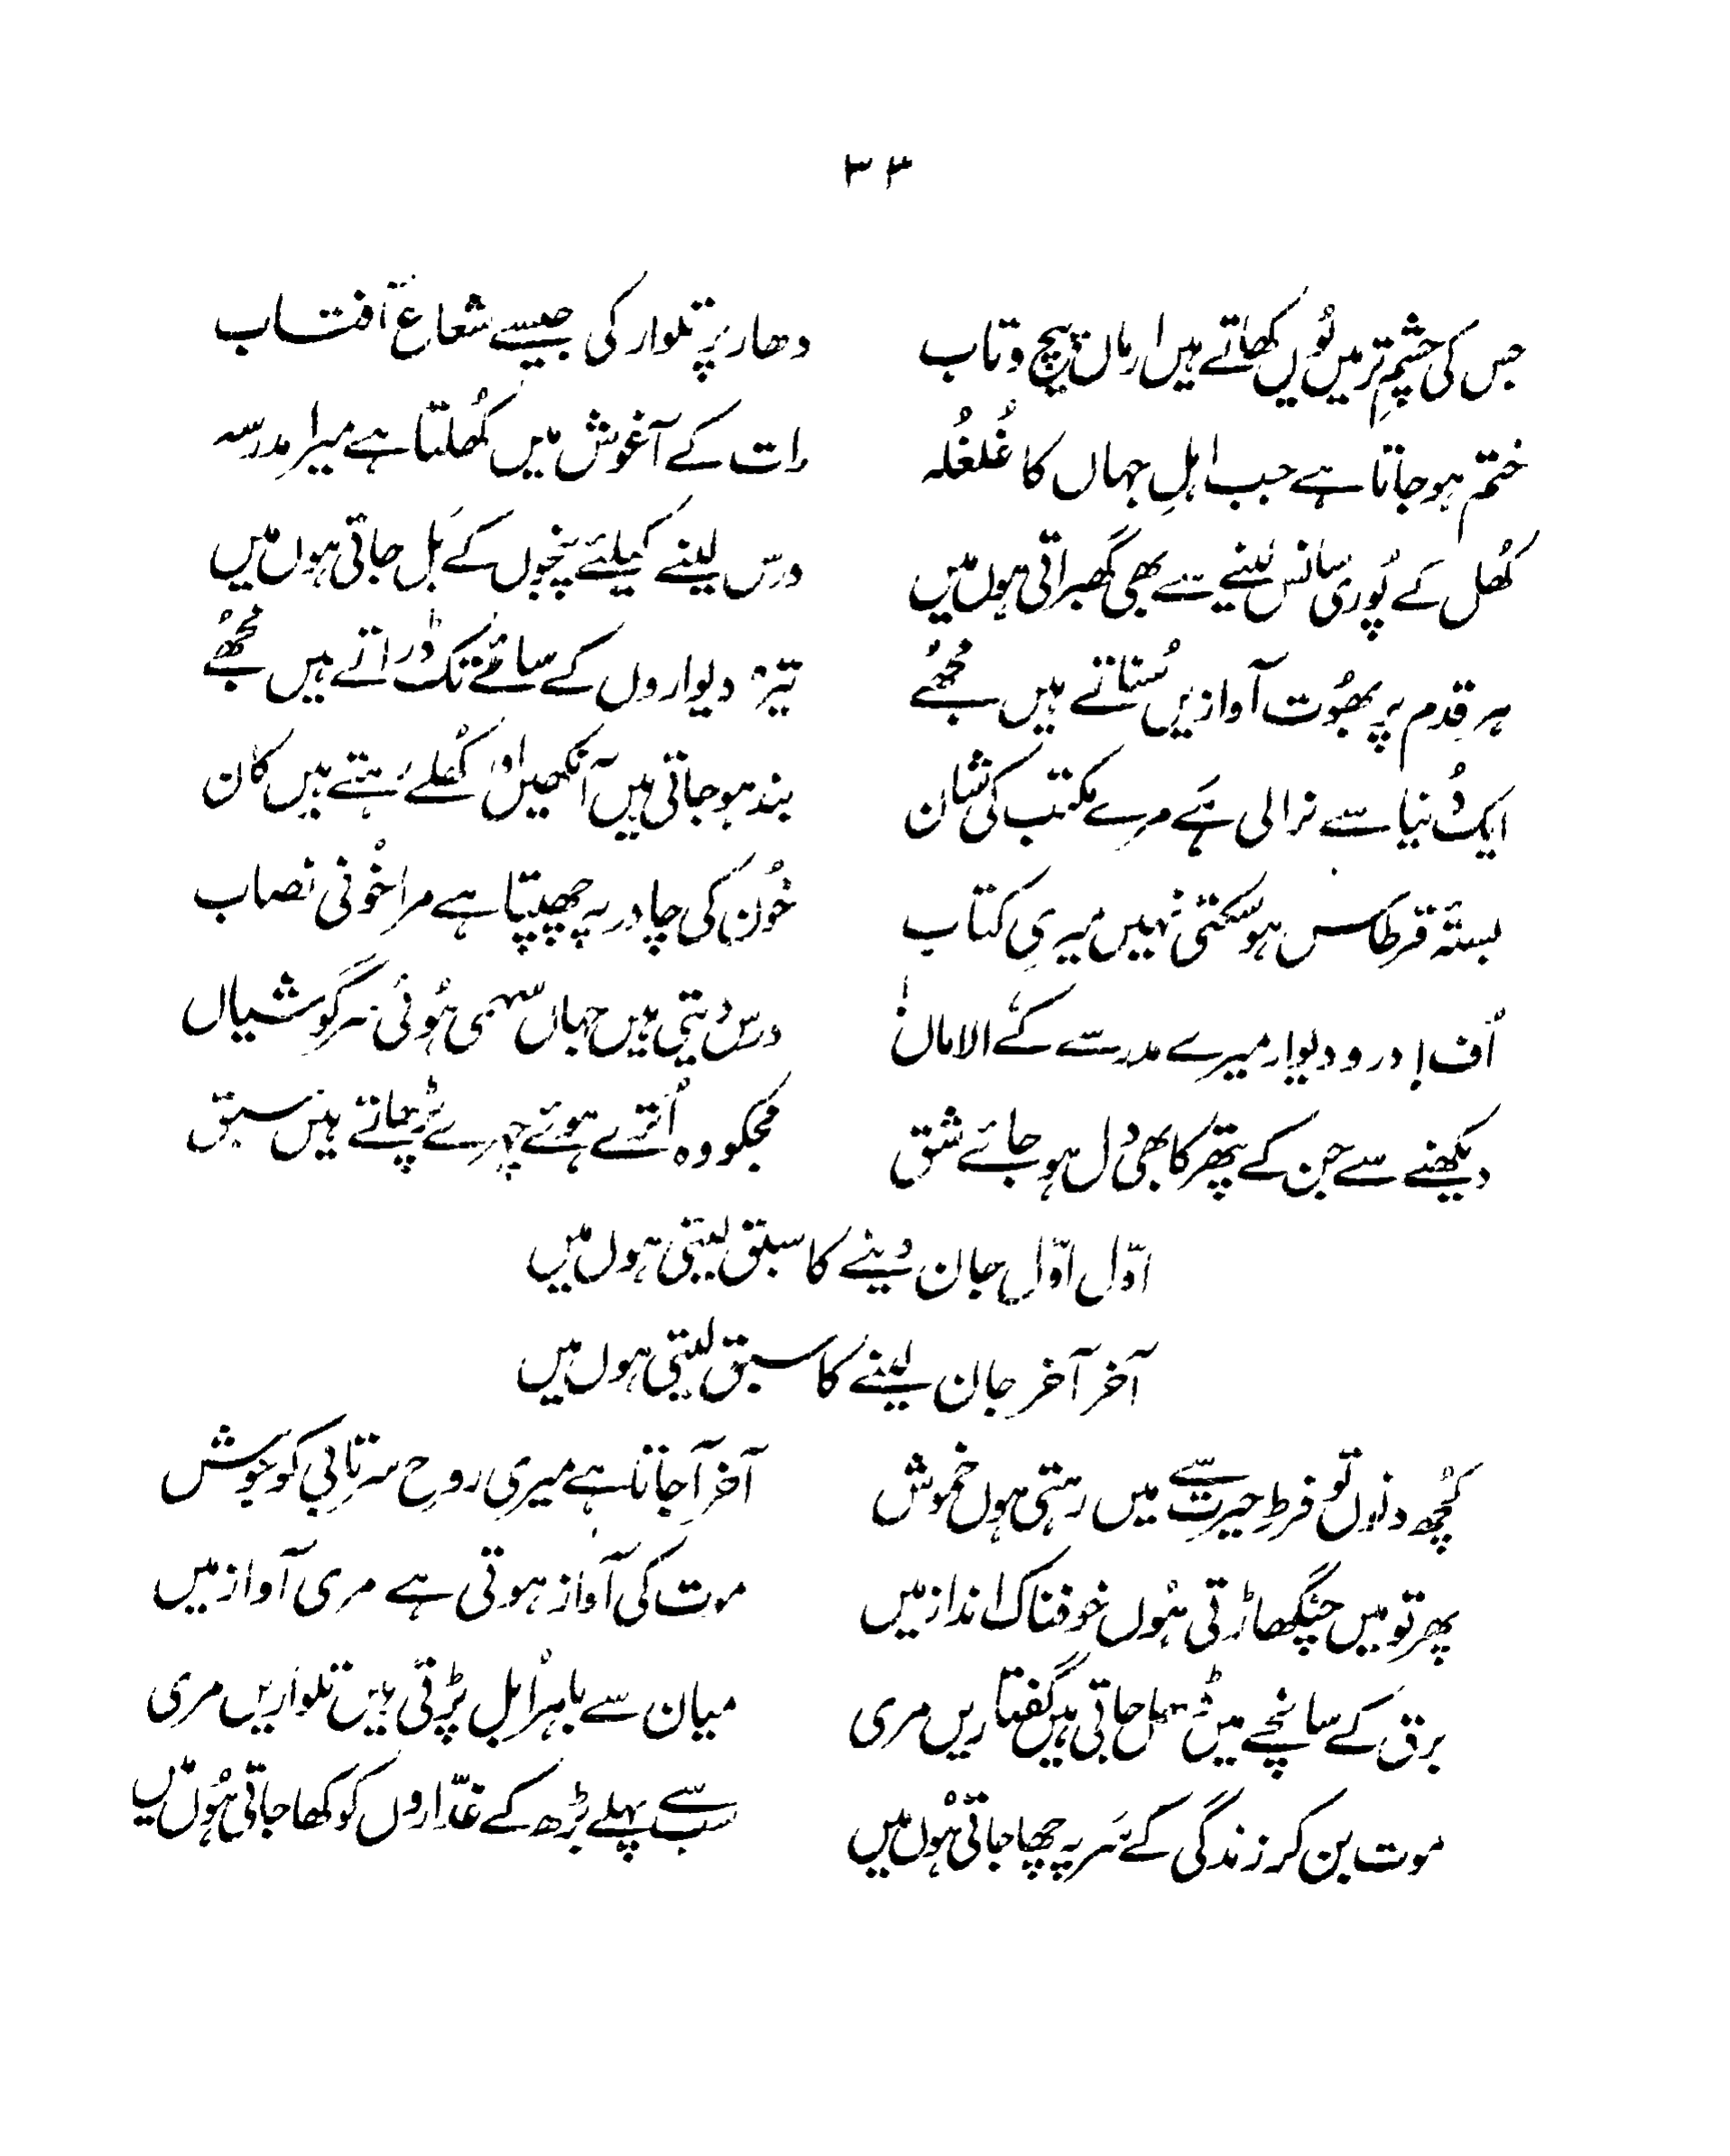 ٣٣
جس کی چشمِ تر میں یُوں کھاتے ہیں ارماں پیچ و تاب
دھار پر تلوار کی جیسے شعاعِ آفتاب
ختم ہو جاتا ہے جب اہلِ جہاں کا غُلغُلہ
رات کے آغوش میں کُھلتا ہے میرا مدرسہ
کُھل کے پُوری سانس لینے سے بھی گھبراتی ہوں میں
درس لینے کیلئے پنجوں کے بَل جاتی ہوں میں
ہر قدم پر بھُوت آوازیں سُناتے ہیں مُجھے
تیرہ دیواروں کے سائے تک ڈراتے ہیں مُجھے
ایک دُنیا سے نرالی ہَے مرے مکتب کی شان
بند ہو جاتی ہیں آنکھیں اور کُھلے رہتے ہیں کان
بستۂ قرطاس ہو سکتی نہیں میری کتاب
خُون کی چادر پہ چھپتا ہے مرا خُونی نصاب
اُف! در و دیوار میرے مدرسے کے الاماں!
درس دیتی ہیں جہاں سہمی ہُوئی سرگوشیاں
دیکھنے سے جن کے پتھر کا بھی دل ہو جائے شق
مجکو وہ اُترے ہوئے چہرے پڑھاتے ہیں سبق
اوّل اوّل جان دینے کا سبق لیتی ہوں میں
آخر آخر جان لینے کا سبق لیتی ہوں میں
کُچھ دنوں تو فرطِ حیرت سے میں رہتی ہوں خموش
آخر آ جاتا ہے میری روحِ سرتابی کو جوش
پھر تو میں چنگھاڑتی ہُوں خوفناک انداز میں
موت کی آواز ہوتی ہے مری آواز میں
برق کے سانچے میں ڈھل جاتی ہیں گفتاریں مری
میان سے باہر اُبل پڑتی ہیں تلواریں مری
موت بن کر زندگی کے سَر پہ چھا جاتی ہُوں میں
سب سے پہلے بڑھ کے غدّاروں کو کھا جاتی ہُوں میں